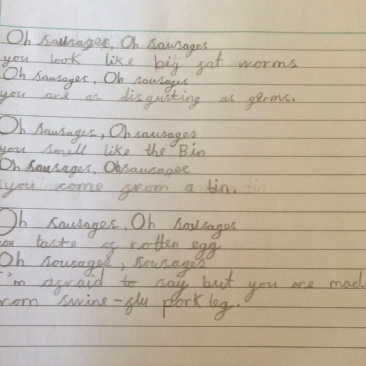 Oh sausages, Oh sausages
you look like big fat worms
Oh sausages, Oh sausages
you are as disgusting as germs.
Oh sausages, Oh sausages
you smell like the Bin
Oh sausages, Oh sausages
you come from a tin.
Oh sausages, Oh sausages
you taste of rotten egg
Oh sausages, sausages
I'm afraid to say but you are mad
from swine-flu pork leg.